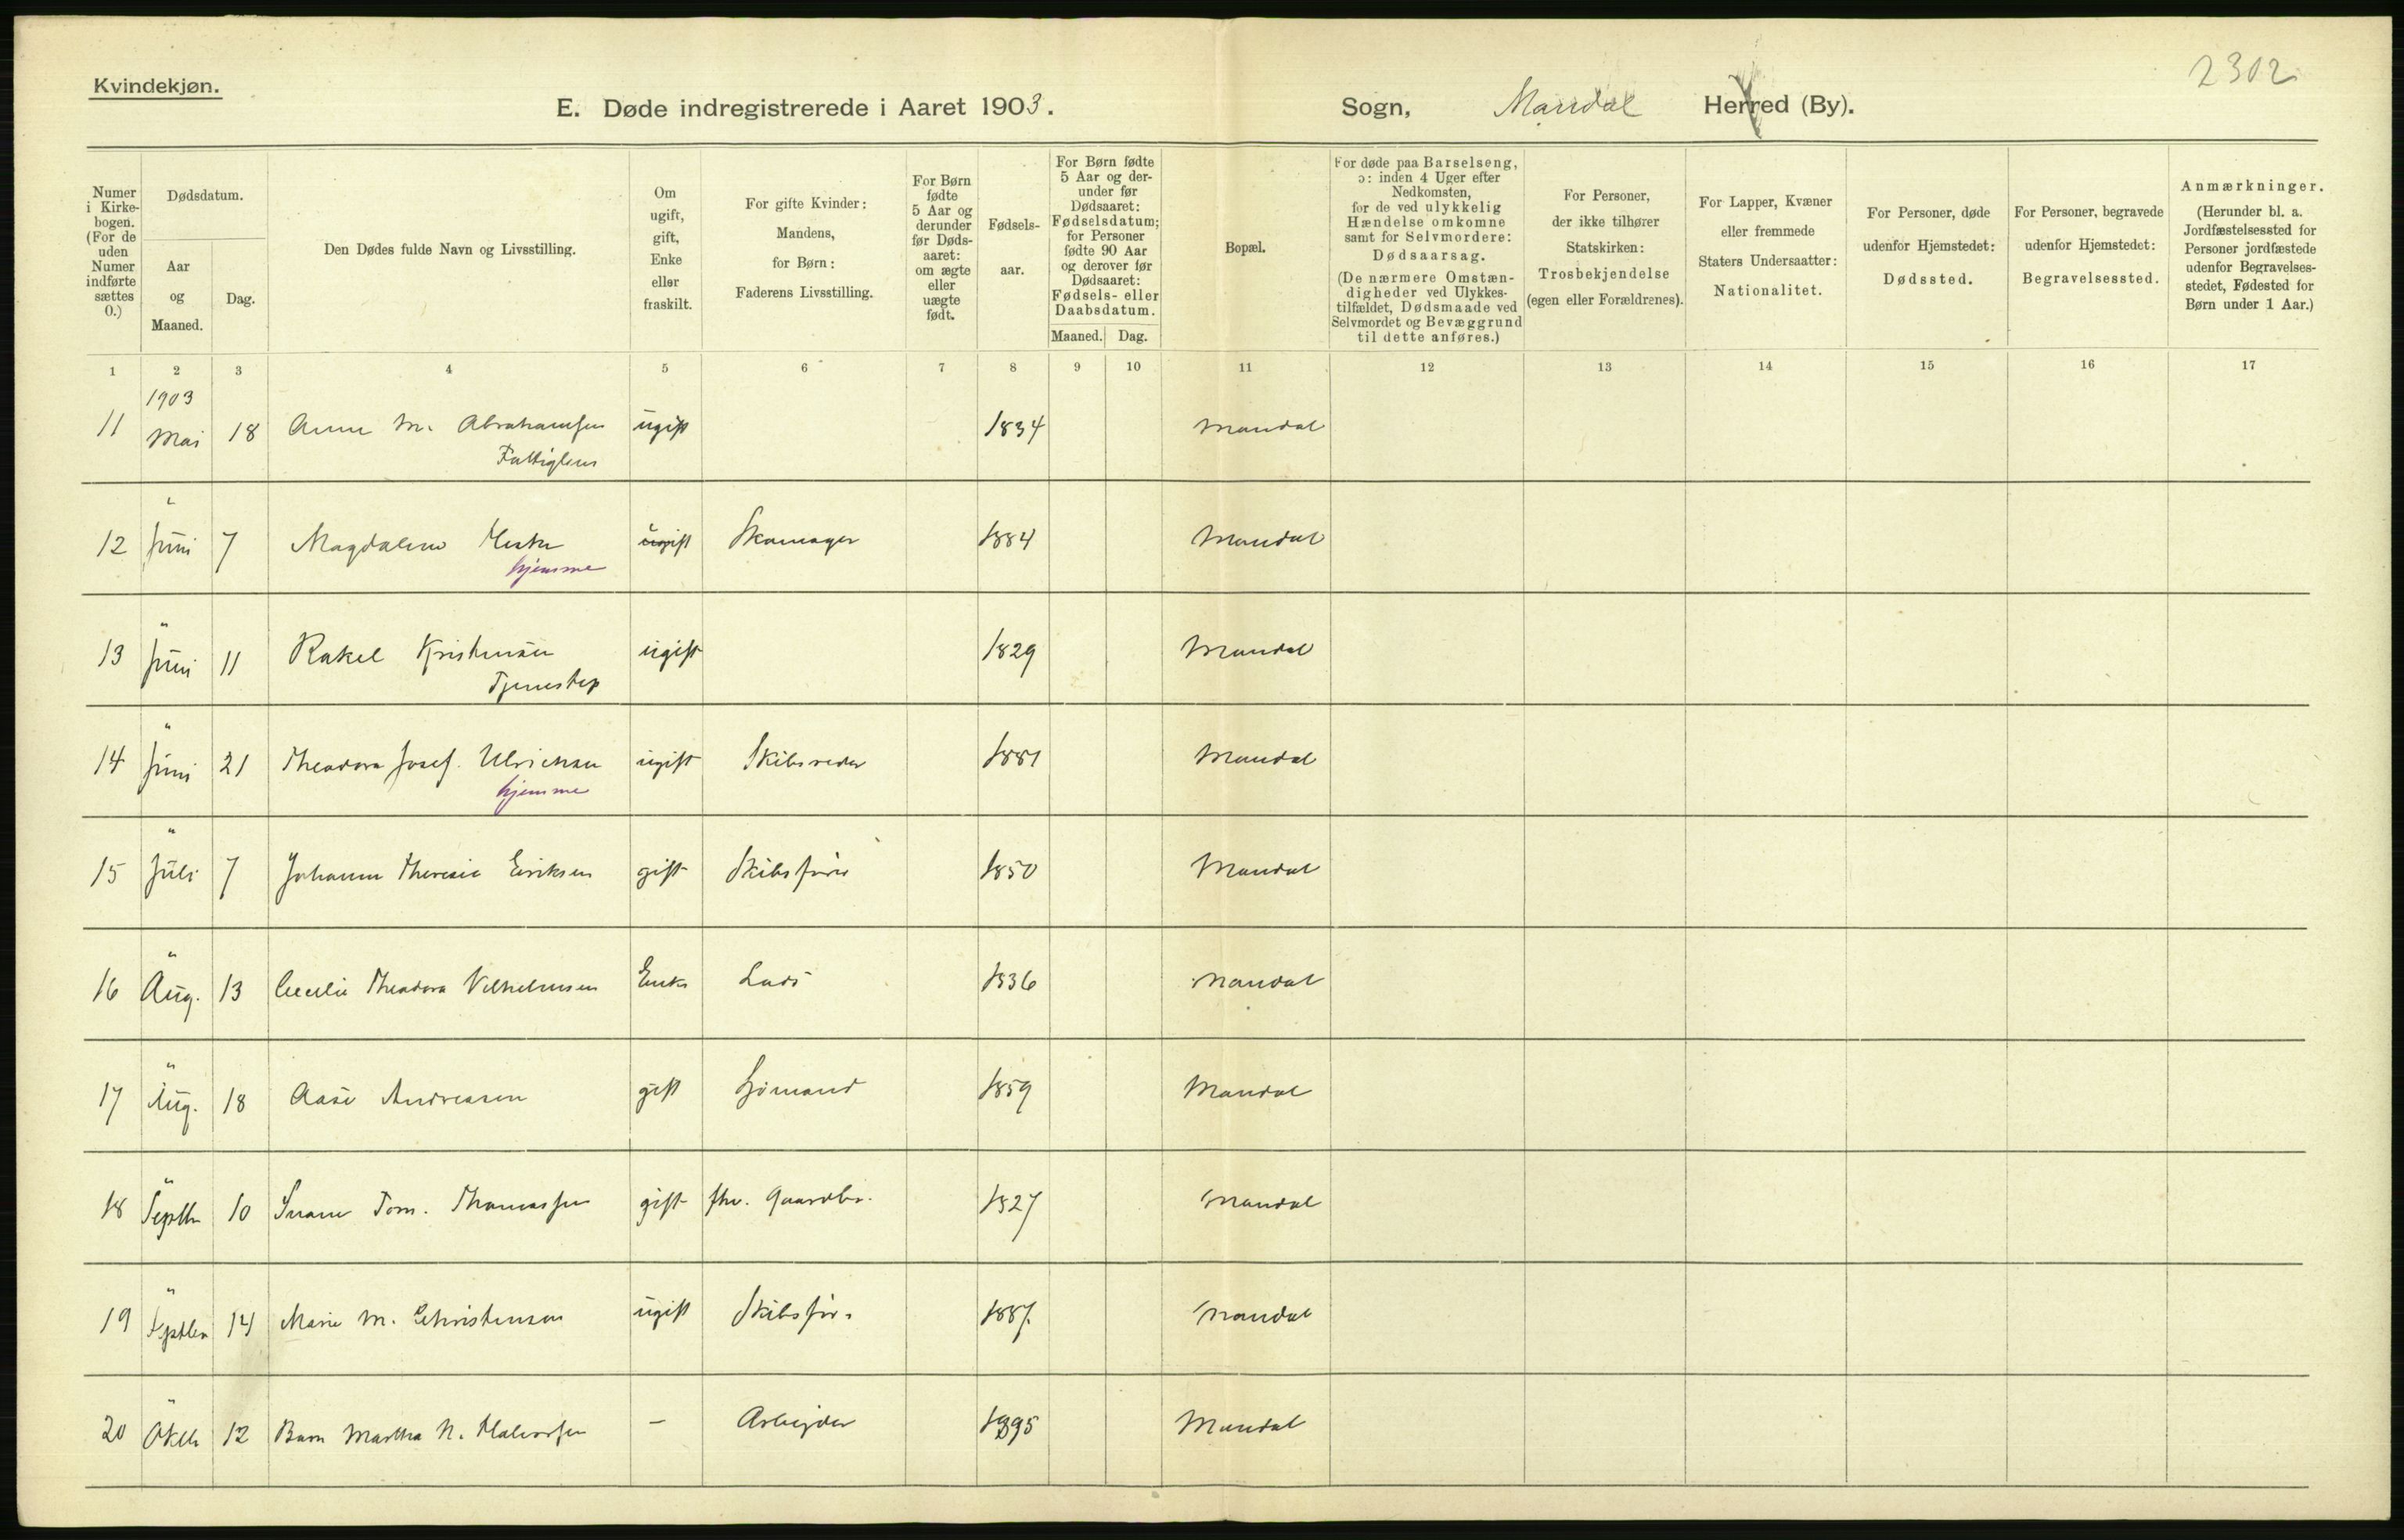 2302
Kvindekjøn.
E. Døde indregistrerede i Aaret 1903. Sogn, Mandal Herred (By).
Numer i Kirke-bogen. (For de uden Numer indførte sættes 0.)
Dødsdatum.
Aar og Maaned.
Dag.
Den Dødes fulde Navn og Livsstilling.
Om ugift, gift, Enke eller fraskilt.
For gifte Kvinder: Mandens, for Børn: Faderens Livsstilling.
For Børn fødte 5 Aar og derunder før Døds-aaret: om ægte eller uægte født.
Fødsels-aar.
For Børn fødte 5 Aar og der-under før Dødsaaret: Fødselsdatum; for Personer fødte 90 Aar og derover før Dødsaaret: Fødsels- eller Daabsdatum.
Maaned. Dag.
Bopæl.
For døde paa Barselseng, ɔ: inden 4 Uger efter Nedkomsten, for de ved ulykkelig Hændelse omkomne samt for Selvmordere: Dødsaarsag.
(De nærmere Omstæn-digheder ved Ulykkes-tilfældet, Dødsmaade ved Selvmordet og Bevæggrund til dette anføres.)
For Personer, der ikke tilhører Statskirken: Trosbekjendelse (egen eller Forældrenes).
For Lapper, Kvæner eller fremmede Staters Undersaatter: Nationalitet.
For Personer, døde udenfor Hjemstedet: Dødssted.
For Personer, begravede udenfor Hjemstedet: Begravelsessted.
Anmærkninger. (Herunder bl. a. Jordfæstelsessted for Personer jordfæstede udenfor Begravelses-stedet, Fødested for Børn under 1 Aar.)
1 2 3 4 5 6 7 8 9 10 11 12 13 14 15 16 17
1903
11 Mai 18 Anne M. Abrahamsen ugift 1834 Mandal
Fattiglem
"
12 Juni 7 Magdalene ugift Skomager 1884 Mandal
hjemme
"
13 Juni 11 Rakel Kristensen ugift 1829 Mandal
Tjenestep
"
14 Juni 21 Theodora Josef. Ulrichsen ugift Skibsreder 1881 Mandal
hjemme
"
15 Juli 7 Johanne Theresie Eriksen gift Skibsfører 1850 Mandal
"
16 Aug. 13 Cecilie Theodora Vilhelmsen Enke Lods 1836 Mandal
"
17 Aug. 18 Aase Andreasen gift Sjømand 1859 Mandal
"
18 Septbr 10 Tom. Thomassen gift fhv. Gaardbr. 1827 Mandal
"
19 Septbr 14 Marie M. Christensen ugift Skibsfør. 1887. Mandal
"
20 Oktb 12 Barn Martha N. Halvorsen — Arbeider 1895 Mandal